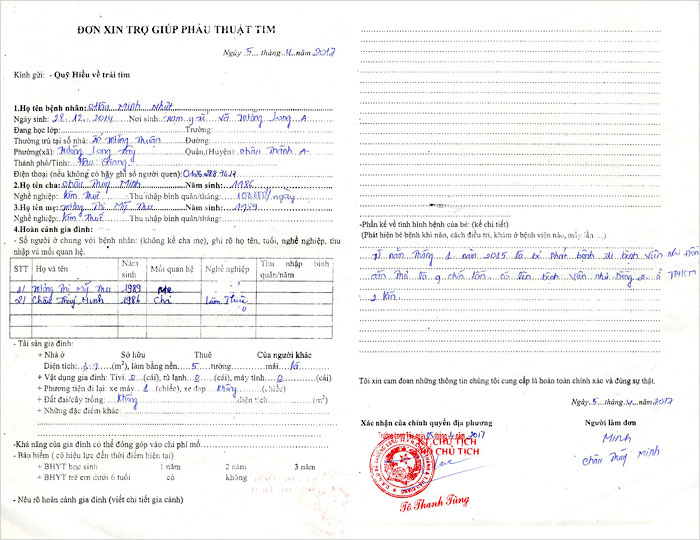 ĐƠN XIN TRỢ GIÚP PHẪU THUẬT TIM
Ngày 5 tháng 4 năm 2017
Kính gửi: - Quỹ Hiểu về trái tim
1.Họ tên bệnh nhân: Châu Minh Nhựt
Ngày sinh: 28.12.2014 Nơi sinh: Trạm y tế xã Trường Long A
Đang học lớp: Trường:
Thường trú tại số nhà: Ấp Trường Thuận Đường:
Phường(xã): Trường Long Tây Quận,(Huyện): Châu Thành A
Thành phố/Tỉnh: Hậu Giang
Điện thoại (nếu không có hãy ghi số người quen):
2.Họ tên cha: Châu Thuý Minh Năm sinh: 1986
Nghề nghiệp: Làm Thuê Thu nhập bình quân/tháng: /ngày
3.Họ tên mẹ: Trương Thị Mỹ Thu Năm sinh: 1989
Nghề nghiệp: Làm Thuê Thu nhập bình quân/tháng:
4.Hoàn cảnh gia đình:
- Số người ở chung với bệnh nhân: (không kể cha mẹ), ghi rõ họ tên, tuổi, nghề nghiệp, thu
nhập và mối quan hệ.
STT Họ và tên Năm sinh Mối quan hệ Nghề nghiệp Thu nhập bình quân/năm
1/ Trương Thị Mỹ Thu 1989 Mẹ
2/ Châu Thuý Minh 1986 Cha Làm Thuê
- Tài sản gia đình:
+ Nhà ở Sở hữu Thuê Của người khác
Diện tích: (m²), làm bằng nền 5 tường mái lá
+ Vật dụng gia đình: Tivi 0 (cái), tủ lạnh 0 (cái), máy tính 0 (cái)
+ Phương tiện đi lại: xe máy 1 (chiếc), xe đạp không (chiếc)
+ Đất đai/cây trồng: không diện tích (m²)
+ Những đặc điểm khác:
-Khả năng của gia đình có thể đóng góp vào chi phí mổ
- Bảo hiểm ( có hiệu lực đến thời điểm hiện tại)
+ BHYT học sinh 1 năm 2 năm 3 năm
+ BHYT trẻ em dưới 6 tuổi có không
- Nêu rõ hoàn cảnh gia đình (viết chi tiết gia cảnh)
-Phần kể về tình hình bệnh của bé: (kể chi tiết)
(Phát hiện bé bệnh khi nào, cách điều trị, khám ở bệnh viện nào, mấy lần ...)
Từ năm Tháng 1 năm 2015 là bị phát bệnh đi bệnh viện nhi Đồng
cần Thơ là 9 chín lần có lên bệnh viện nhi Đồng 2 ở TPHCM
2 lần
Tôi xin cam đoan những thông tin chúng tôi cung cấp là hoàn toàn chính xác và đúng sự thật.
Ngày 5 tháng 4 năm 2017
Xác nhận của chính quyền địa phương Người làm đơn
Trường Long Tây, ngày 05 tháng 4 năm 2017
KT.CHỦ TỊCH
PHÓ CHỦ TỊCH
Minh
Châu Thuý Minh
Tô Thanh Tùng